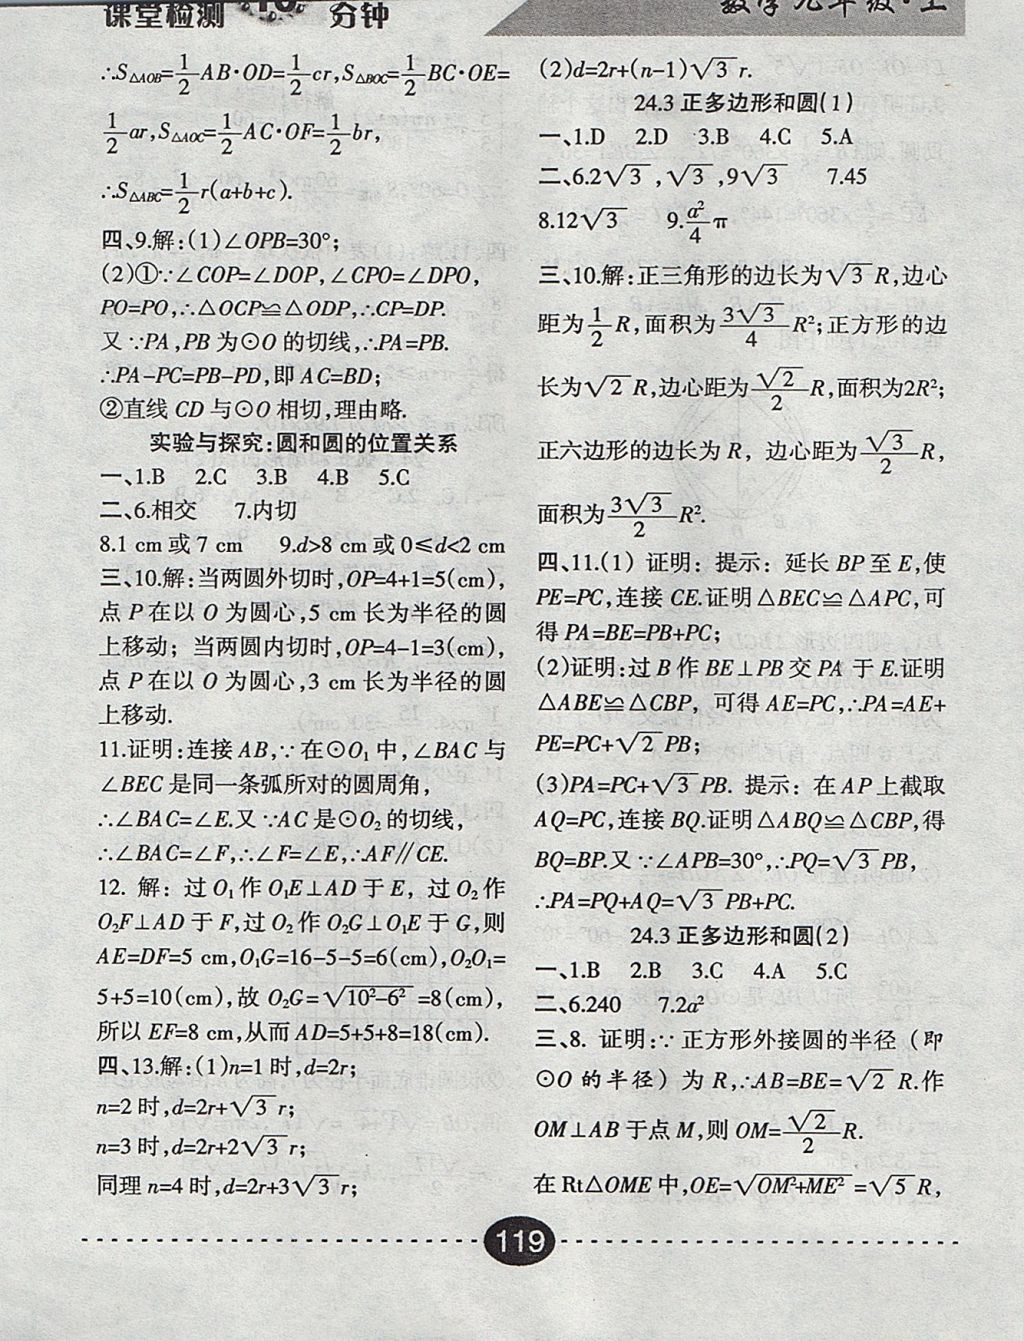 课堂检测 10 分钟
数学九年级·上
∴S△AOB=1/2AB·OD=1/2cr,S△BOC=1/2BC·OE=
1/2ar,S△AOC=1/2AC·OF=1/2br,
∴S△ABC=1/2r(a+b+c).
四、9.解:(1)∠OPB=30°;
(2)①∵∠COP=∠DOP,∠CPO=∠DPO,
PO=PO,∴△OCP≌△ODP,∴CP=DP.
又∵PA,PB为⊙O的切线,∴PA=PB.
∴PA-PC=PB-PD,即AC=BD;
②直线CD与⊙O相切,理由略.
实验与探究:圆和圆的位置关系
一、1.B 2.C 3.B 4.B 5.C
二、6.相交 7.内切
8.1 cm或7 cm 9.d>8 cm或0≤d<2 cm
三、10.解:当两圆外切时,OP=4+1=5(cm),
点P在以O为圆心,5 cm长为半径的圆
上移动;当两圆内切时,OP=4-1=3(cm),
点P在以O为圆心,3 cm长为半径的圆
上移动.
11.证明:连接AB,∵在⊙O₁中,∠BAC与
∠BEC是同一条弧所对的圆周角,
∴∠BAC=∠E.又∵AC是⊙O₂的切线,
∴∠BAC=∠F,∴∠F=∠E,∴AF∥CE.
12. 解:过O₁作O₁E⊥AD于E,过O₂作
O₂F⊥AD于F,过O₂作O₂G⊥O₁E于G,则
AE=DF=5 cm,O₁G=16-5-5=6(cm),O₂O₁=
5+5=10(cm),故O₂G=√(10²-6²)=8(cm),
所以EF=8 cm,从而AD=5+5+8=18(cm).
四、13.解:(1)n=1时,d=2r;
n=2时,d=2r+√3r;
n=3时,d=2r+2√3r;
同理n=4时,d=2r+3√3r;
(2)d=2r+(n-1)√3r.
24.3 正多边形和圆(1)
一、1.D 2.D 3.B 4.C 5.A
二、6.2√3,√3,9√3 7.45
8.12√3 9.a²/4π
三、10.解:正三角形的边长为√3R,边心
距为1/2R,面积为3√3/4R²;正方形的边
长为√2R,边心距为√2/2R,面积为2R²;
正六边形的边长为R,边心距为√3/2R,
面积为3√3/2R².
四、11.(1) 证明:提示:延长BP至E,使
PE=PC,连接CE.证明△BEC≌△APC,可
得PA=BE=PB+PC;
(2)证明:过B作BE⊥PB交PA于E.证明
△ABE≌△CBP,可得AE=PC,∴PA=AE+
PE=PC+√2PB;
(3)PA=PC+√3PB. 提示:在AP上截取
AQ=PC,连接BQ.证明△ABQ≌△CBP,得
BQ=BP.又∵∠APB=30°,∴PQ=√3PB,
∴PA=PQ+AQ=√3PB+PC.
24.3 正多边形和圆(2)
一、1.B 2.B 3.C 4.A 5.C
二、6.240 7.2a²
三、8. 证明:∵正方形外接圆的半径(即
⊙O的半径)为R,∴AB=BE=√2R.作
OM⊥AB于点M,则OM=√2/2R.
在Rt△OME中,OE=√(OM²+ME²)=√5R,
119